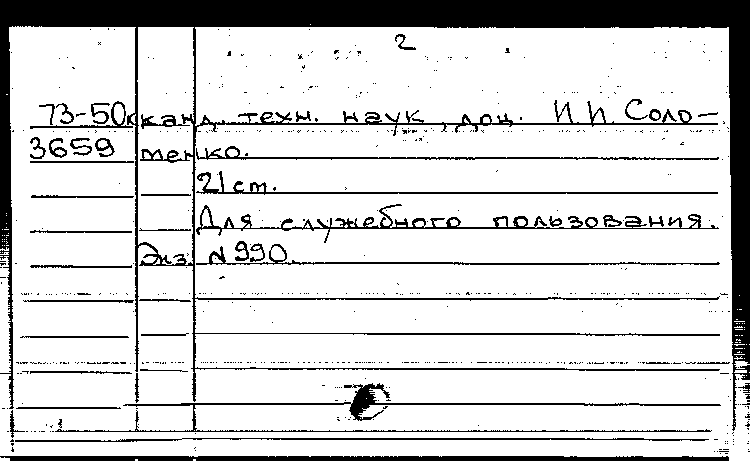 2
73-50к канд. техн. наук, доц. И.И. Соло-
3659 менко.
21 см.
Для служебного пользования.
Экз. N 990.